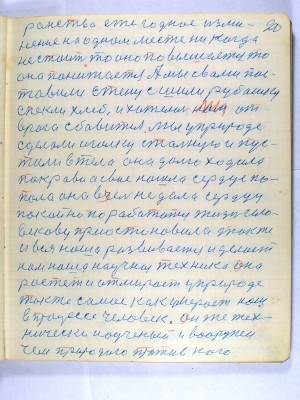 20
ранства ежегодное изми-
нения на одном месте никогда
не стоит, то оно повышается то
она понижается А мы с вами пос-
тавили стену сшили рубашку
спекли хлеб, и хотели от
врага сбавится, мы у природе
сделали иголку стальную и пус-
тили в тела она долго ходила
по крови а с вие нашла сердце по-
пола она в чем не дала сердцу
покойно поработать жизнь чело-
векову приостановила также
и вся наша развивается и делает
нам наша научная техника она
растет и отмирает у природе
также само как умерает наш
в процессе человек. он же тех-
нически изученый и вооружен
чем природа против кого